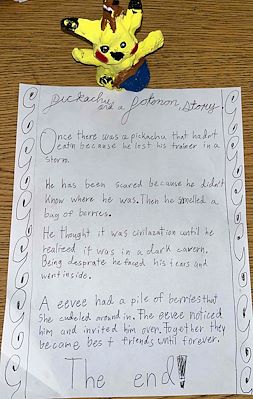 pickachu and a pokmon story
Once there was a pickachu that hadn't
eatn because he lost his trainer in a
storm.
He has been scared because he didn't
know where he was. Then he smelled a
bag of berries.
He thought it was civilazation until he
realized it was in a dark cavern.
Being desprate he faced his fears and
went inside.
A eevee had a pile of berries that
she cudeled around in. The eevee noticed
him and invited him over. Together they
became best friends until forever.
The end!